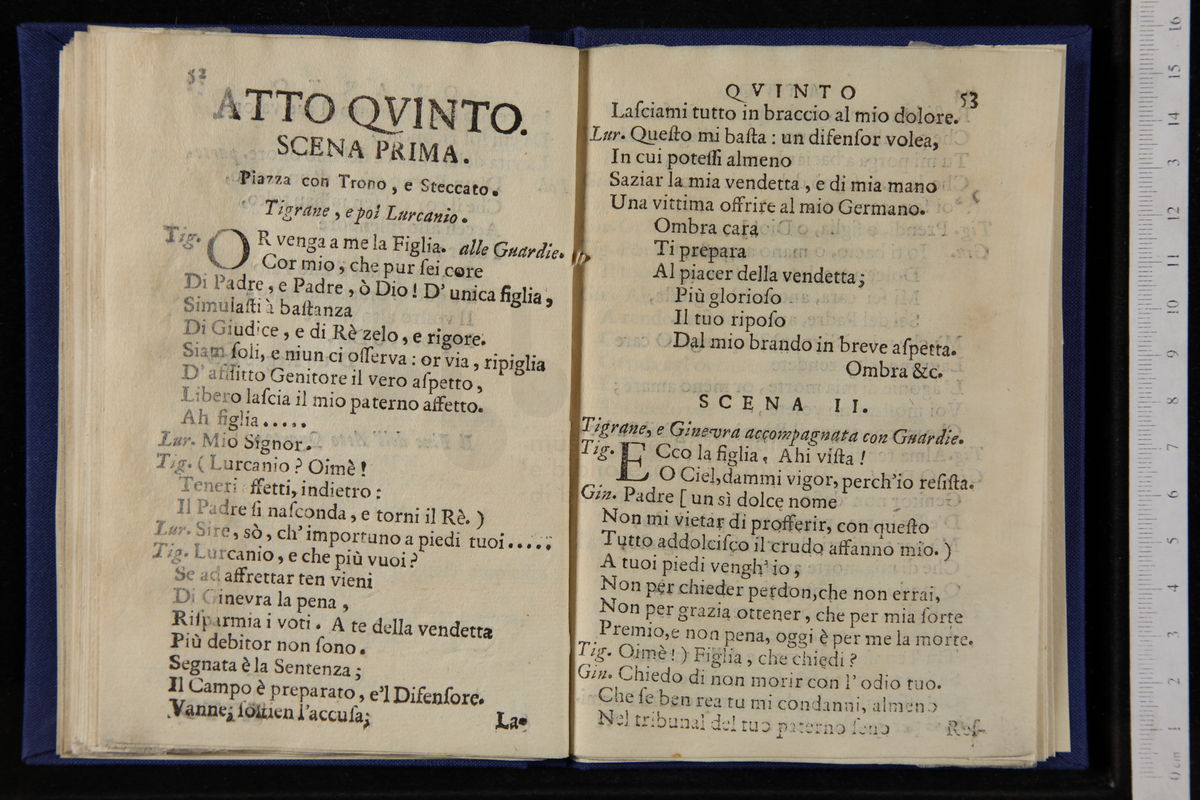 52
ATTO QVINTO.
SCENA PRIMA.
Piazza con Trono, e Steccato.
Tigrane, e poi Lurcanio.
Tig. OR venga a me la Figlia. alle Guardie.
Cor mio, che pur ſei core
Di Padre, e Padre, ò Dio! D' unica figlia,
Simulaſti à baſtanza
Di Giudice, e di Rè zelo, e rigore.
Siam ſoli, e niun ci oſſerva: or via, ripiglia
D' afflitto Genitore il vero aſpetto,
Libero laſcia il mio paterno affetto.
Ah figlia.....
Lur. Mio Signor.
Tig. (Lurcanio? Oimè!
Teneri affetti, indietro:
Il Padre ſi naſconda, e torni il Rè.)
Lur. Sire, sò, ch' importuno a piedi tuoi.....
Tig. Lurcanio, e che più vuoi?
Se ad affrettar ten vieni
Di Ginevra la pena,
Riſparmia i voti. A te della vendetta
Più debitor non ſono.
Segnata è la Sentenza;
Il Campo è preparato, e'l Difenſore.
Vanne; ſoſtien l'accuſa;
La-
QVINTO
53
Laſciami tutto in braccio al mio dolore.
Lur. Queſto mi baſta: un difenſor volea,
In cui poteſſi almeno
Saziar la mia vendetta, e di mia mano
Una vittima offrire al mio Germano.
Ombra cara
Ti prepara
Al piacer della vendetta;
Più glorioſo
Il tuo ripoſo
Dal mio brando in breve aſpetta.
Ombra &c.
SCENA II.
Tigrane, e Ginevra accompagnata con Guardie.
Tig. ECco la figlia, Ahi viſta!
O Ciel,dammi vigor, perch'io reſiſta.
Gin. Padre [ un sì dolce nome
Non mi vietar di profferir, con queſto
Tutto addolciſco il crudo affanno mio. )
A tuoi piedi vengh'io,
Non per chieder perdon,che non errai,
Non per grazia ottener, che per mia ſorte
Premio,e non pena, oggi è per me la morte.
Tig. Oimè!) Figlia, che chiedi?
Gin. Chiedo di non morir con l'odio tuo.
Che ſe ben rea tu mi condanni, almeno
Nel tribunal del tuo paterno ſeno
Reſ-